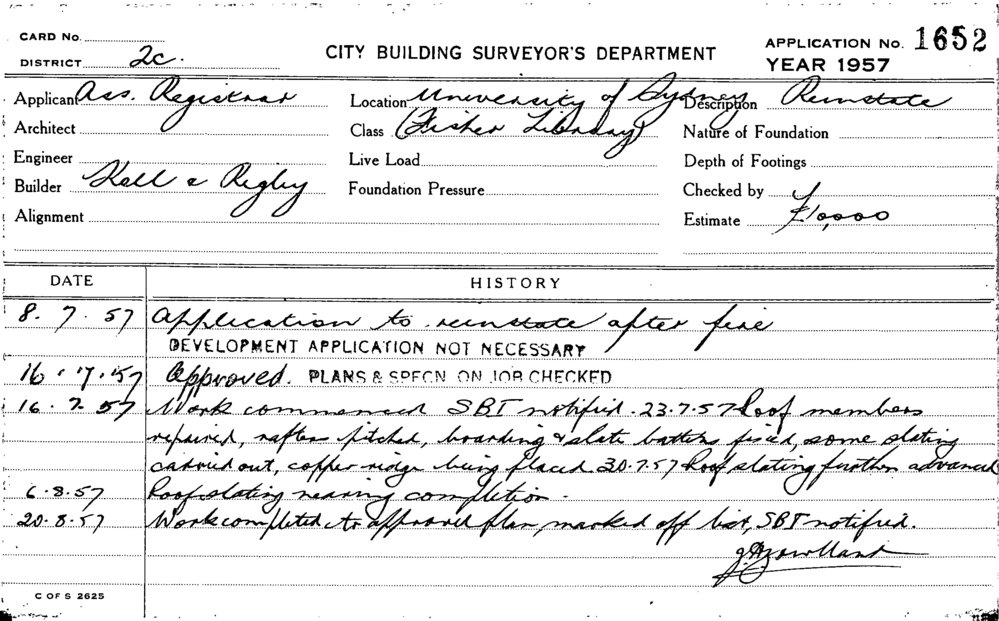 CARD No.
DISTRICT 2c.
CITY BUILDING SURVEYOR'S DEPARTMENT
APPLICATION No. 1652
YEAR 1957
Applicant Ass. Registrar
Location University of Sydney
Description Reinstate
Architect
Class (Fisher Library)
Nature of Foundation
Engineer
Live Load
Depth of Footings
Builder Kell & Rigby
Foundation Pressure
Checked by
Alignment
Estimate £10,000
DATE HISTORY
8. 7. 57 Application to reinstate after fire
DEVELOPMENT APPLICATION NOT NECESSARY
16. 7. 57 Approved. PLANS & SPECN ON JOB CHECKED
16. 7. 57 Work commenced SBI notified. 23.7.57 Roof members
repaired, rafters pitched, boarding & slate battens fixed, some slating
carried out, copper ridge being placed. 30.7.57 Roof slating further advanced
6.8.57 Roof slating nearing completion.
20.8.57 Work completed to approved plan, marked off list, SBI notified.
C OF S 2625